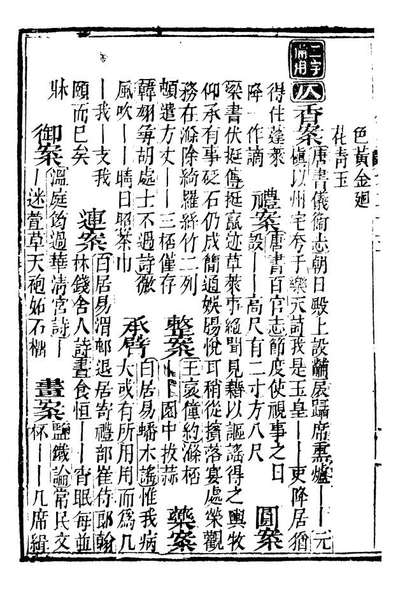 色黃金廻
花青玉
二字備用
仄
香案
唐書儀衛志朝日殿上設黼扆躡席熏爐——元
稹以州宅夸于樂天詩我是玉皇——吏降居猶
得住蓬萊
降一作謫
禮案
唐書百官志節度使視事之日
設——高尺有二寸方八尺
圓案
梁書伏挺傳挺竄迹草萊事絕聞見藉以謳謠得之輿牧
仰承有事砭石仍成簡通娛腸悅耳稍從擯落宴處榮觀
務在滌除綺羅絲竹二列
頓遣方丈——三桮僅存
整案
王裦僮約滌桮
——園中拔蒜
藥案
韓翃尋胡處士不遇詩微
風吹——晴日照茶巾
承臂
白居易蟠木謠惟我病
夫或有所用用而爲几
——我——支我
頤而已矣
連案
白居易渭邨退居寄禮部崔侍郎翰
林錢舍人詩晝食恒——宵眠每並
牀
御案
溫庭筠過華清宮詩——
——迷萱草天袍妬石榴
畫案
鹽鐵論常民文
杯——几席緝